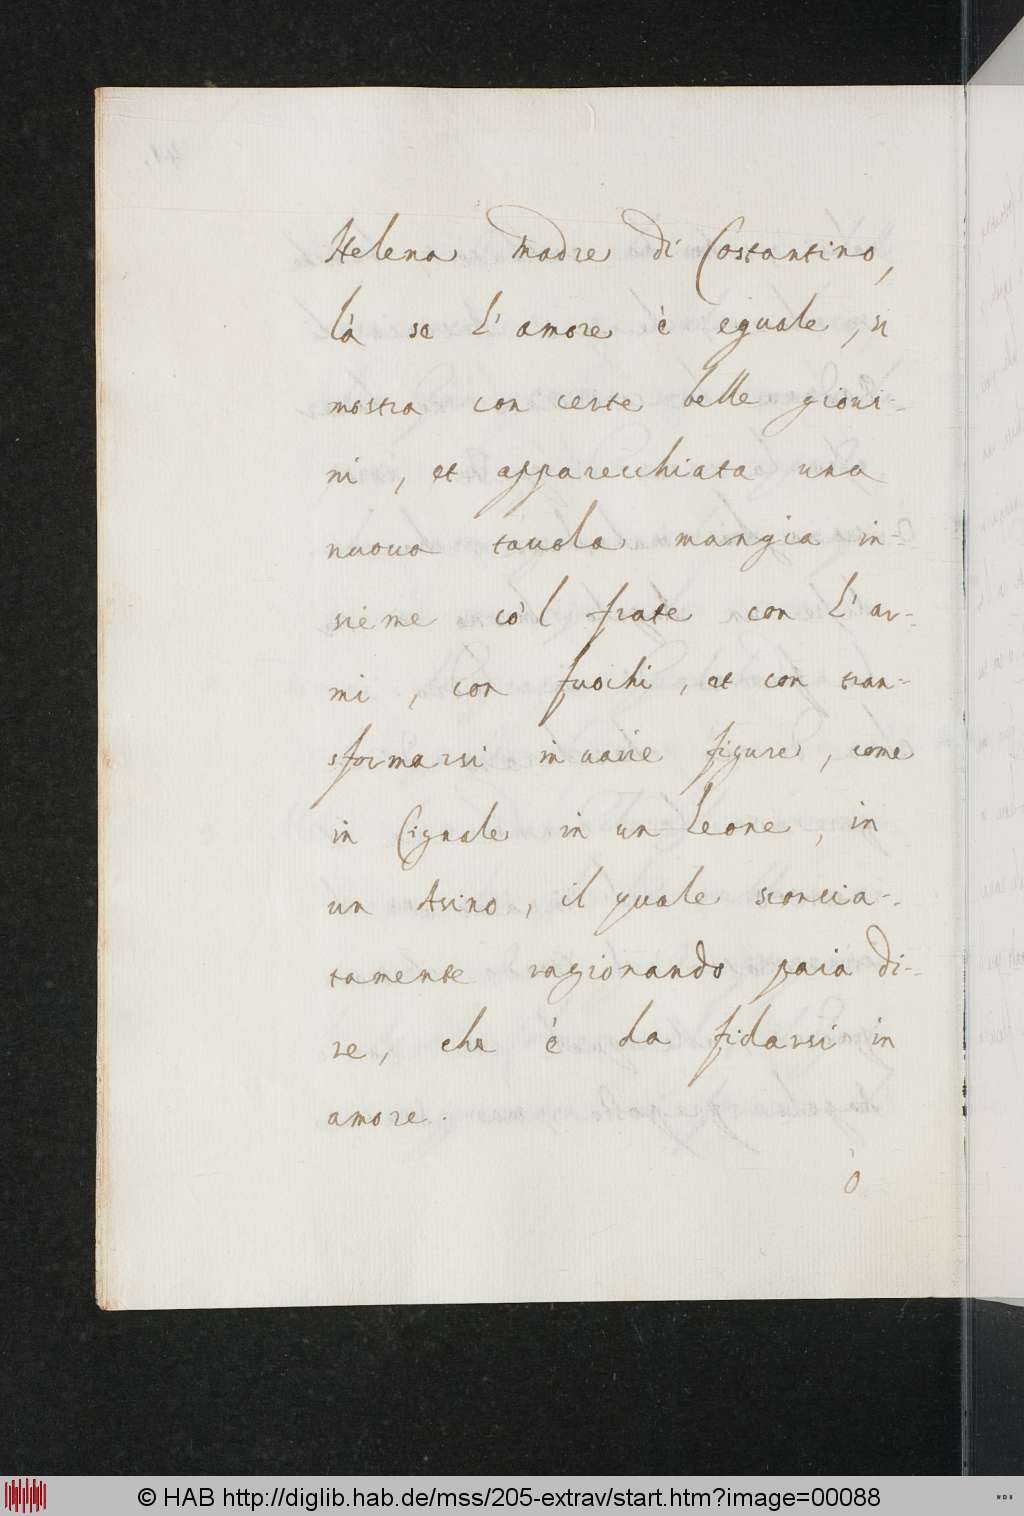 Helena Madre di Costantino,
là se l'amore è eguale, si
mostra con certe belle gioui-
ni, et apparecchiata una
nuoua tauola mangia in-
sieme co'l frate con l'ar-
mi, con fuochi, et con tran-
sformarsi in uarie figure, come
in Cignale in un Leone, in
un Asino, il quale sconcia-
tamente ragionando paia di-
re, che è da fidarsi in
amore.
ò
© HAB http://diglib.hab.de/mss/205-extrav/start.htm?image=00088